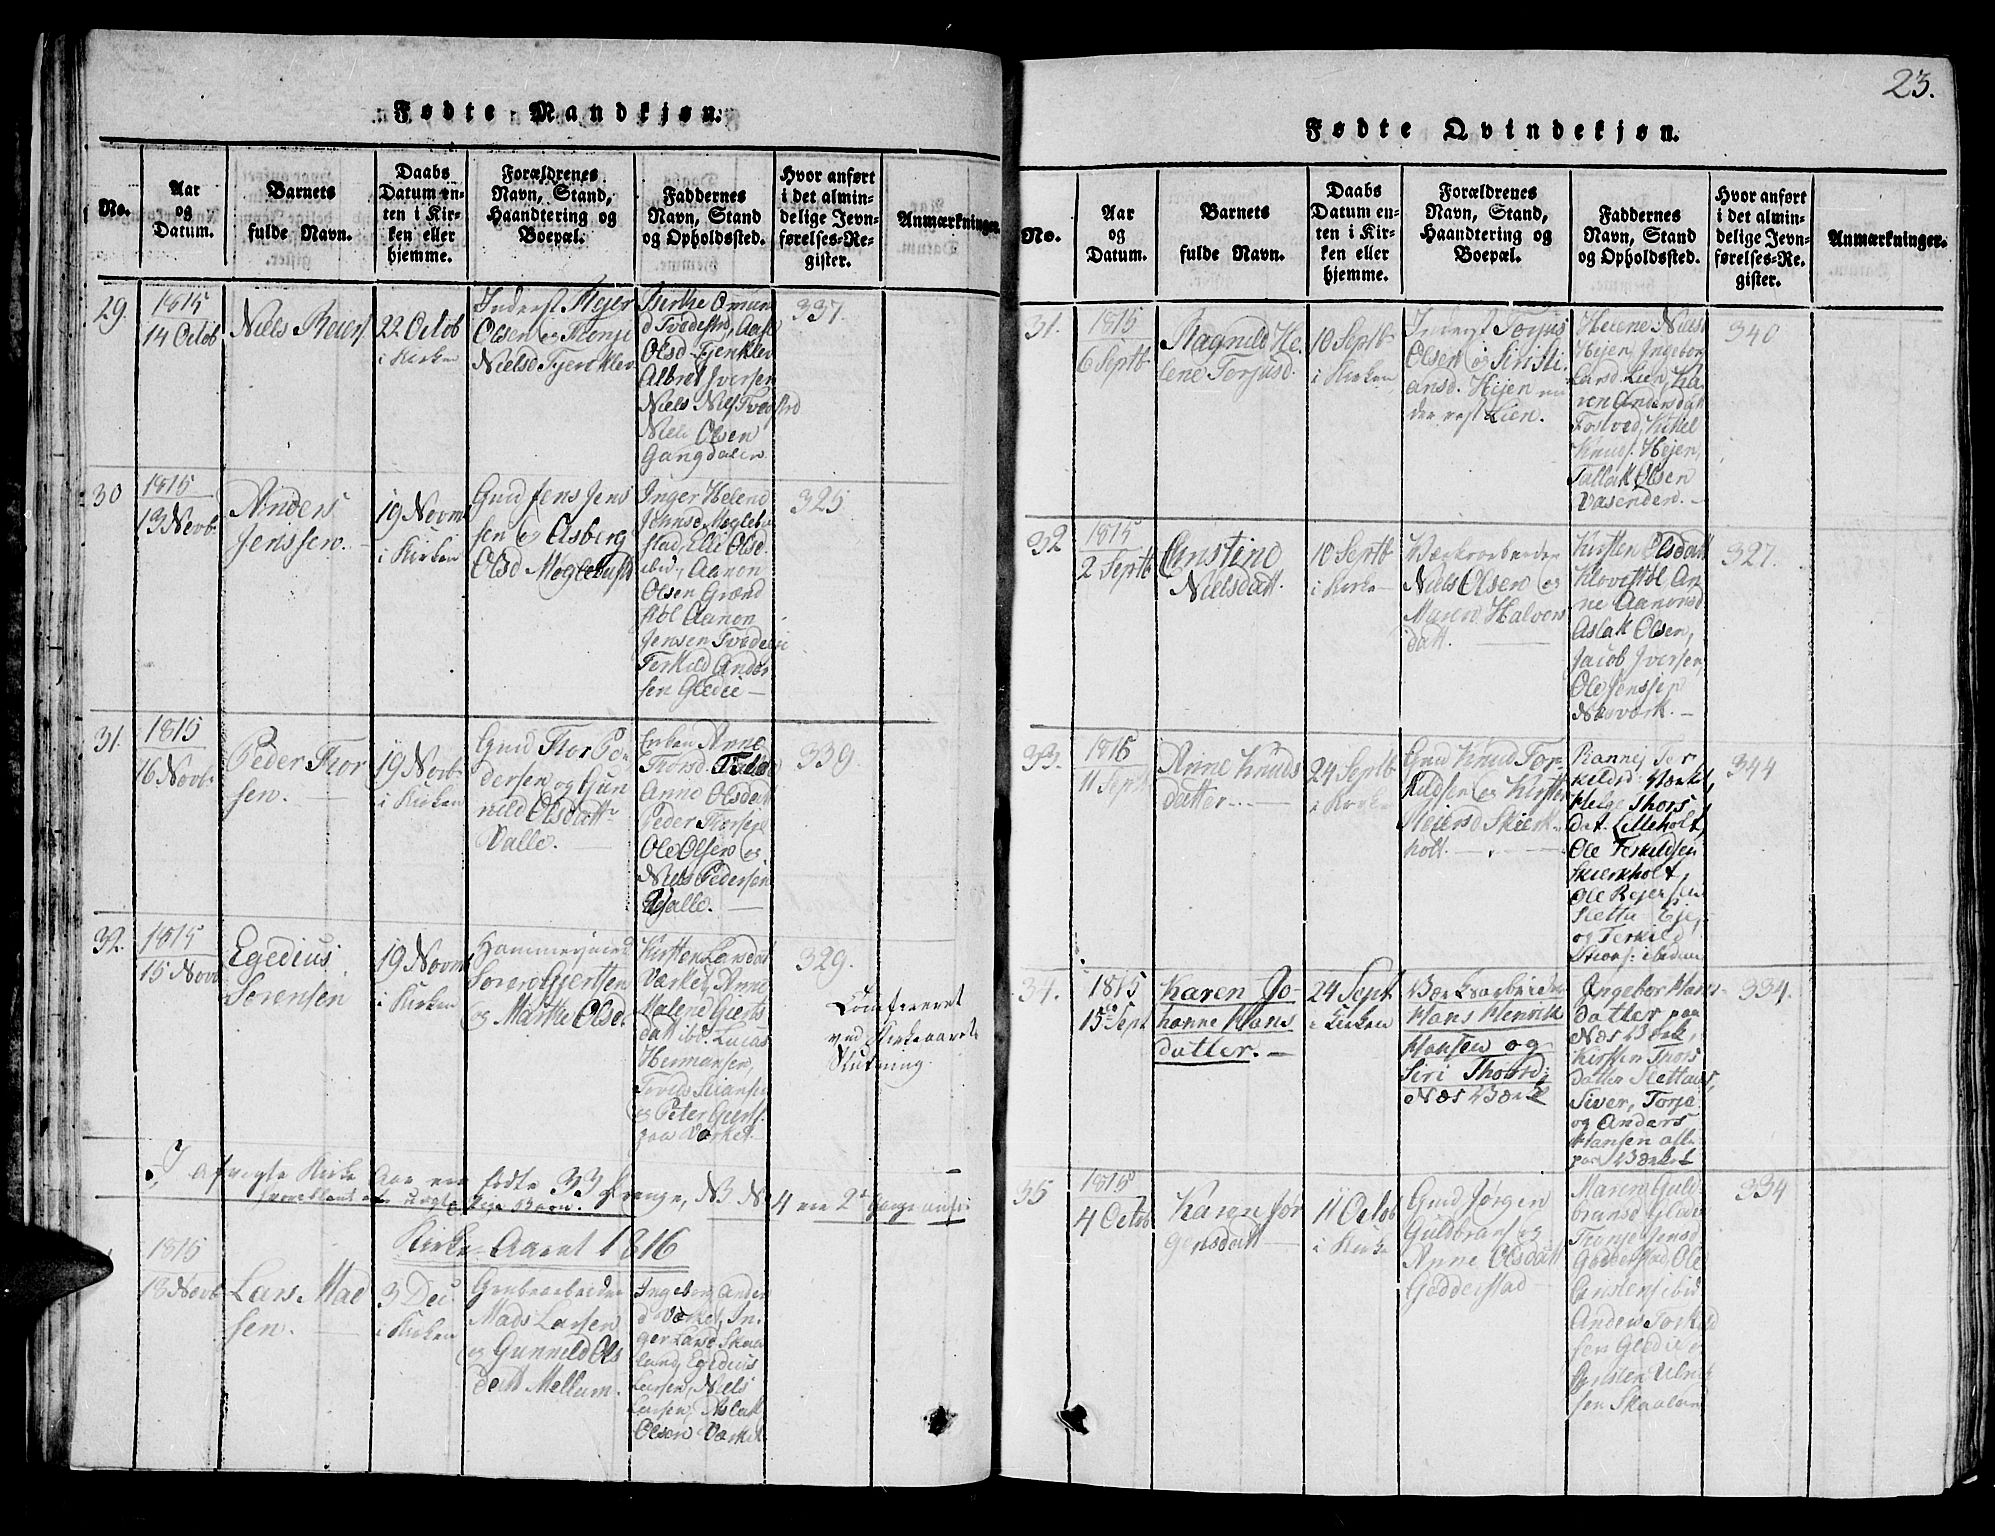 Fødte Mandkjøn.
No.
Aar
og
Datum.
Barnets
fulde Navn.
Daabs
Datum en-
ten i Kir-
ken eller
hjemme.
Forældrenes
Navn, Stand,
Haandtering og
Boepæl.
Faddernes
Navn, Stand
og Opholdssted.
Hvor anført
i det almin-
delige Jevn-
førelses-Re-
gister.
Anmærkninger.
29.
1815
14 Octob
Niels
22 Octob
i Kirken
Inderst Rejer
Olsen og Tronje
Nielsd
Olsd
Albret Iversen
Niels
Niels Olsen
Gangdalen
337.
30
1815
13 Novb.
Anders
Jenssen.
19 Novm
i Kirken
Gmd Jens Jens
sen og Asberg
Olsd
Inger Helene
Olsd.
ibid, Aanon
Olsen
Aanon
Jensen
Terkild Ander
sen Glødie
325
31.
1815
16 Novb.
Peder Thor
sen.
19 Novb.
i Kirken
Gmd Thor Pe-
dersen og Gun
nild Olsdatt.
Valle.
Enken Anne
Thorsd
Anne Olsdatt
Peder Thorsen
Ole Olsen og
Niels Pedersen
Valle.
339.
32.
1815
15 Novb
Egedius
Sørensen
19 Novm.
i Kirken
Søren Giertsen
og Marthe Olsd.
Kirsten Larsdat
Værket, Anne
Malene Gierts
datt ibd. Lucas
Hermansen,
og Peter Gierts.
paa Værket
329.
Comfereret
ved Kirkeaarets
Slutning.
Kirke-Aaret 1816
1815
18 Novb
Lars Mad
sen.
3 Dec.
i Kirken
Grubearbeider
Mads Larsen
og Gunnild Ols
datt Mellum.
Ingeborg Anders
d Værket, In-
ger Larsd Skaa
land, Egedius
Larsen, Niels
Larsen, Aslak
Olsen Værket
23.
Fødte Qvindekjøn.
No.
Aar
og
Datum.
Barnets
fulde Navn.
Daabs
Datum en-
ten i Kir-
ken eller
hjemme.
Forældrenes
Navn, Stand,
Haandtering og
Boepæl.
Faddernes
Navn, Stand
og Opholdssted.
Hvor anført
i det almin-
delige Jevn-
førelses-Re-
gister.
Anmærkninger.
31.
1815
6 Septb
Ragnild He-
lene Torjusd.
10 Septb
i Kirken
Inderst Torjus
Olsen og Cristi-
ansd. Hejen
Lien.
Helene Niels
Hejen, Ingeborg
Larsd. Lien, Ka
ren Andersdatt
Fosved, Kittel
Knuds. Hejen,
Tallak Olsen
Vasenden.
340
32
1815
2 Septb
Cristine
Nielsdatt.
10 Septb
i Kirke
Værksarbeider
Niels Olsen og
Maren Halvors
datt.
Kirsten Olsdatt
Kloveстøl An
ne Aanonsd.
Aslak Olsen,
Jacob Iversen,
Ole Jenssen
Næsværk.
327.
33.
1815
11 Septb
Anne Knuds
datter.
24 Septb
i Kirke
Gmd Knud Tor-
kildsen og Kirsten
Reiersd Skierk-
holt.
Rannej Ter
kildsd. Værket,
Helge Thors
dat. Lilleholt,
Ole Terkildsen
Skierkholt
Ole Rejersen
Sletta Eje,
og Terkild
Thors: ibidem
344
34.
1815
15de Sept
Karen Jo-
hanne Hans
datter.
24 Sept.
i Kirken
Værksarbeider
Hans Henrik
Hansen og
Siri Thorsd:
Næs Værk
Ingebor Hans-
datter paa
Næs Værk,
Kirsten Thors
datter Slettas,
Siver, Torje
og Anders
Hansen alle
paa Værket
334.
35
1815
4 Octob
Karen Jør
gensdatt
11 Octob
i Kirken
Gmd Jørgen
Guldbrans. og
Anne Olsdatt
Godderstad
Maren Guld
bransd
Tronje Jensd
Godderstad, Ole
Cristens. ibid
Anders Torkild
sen Glødie og
Cristen Ulrik
sen Skaaland
334